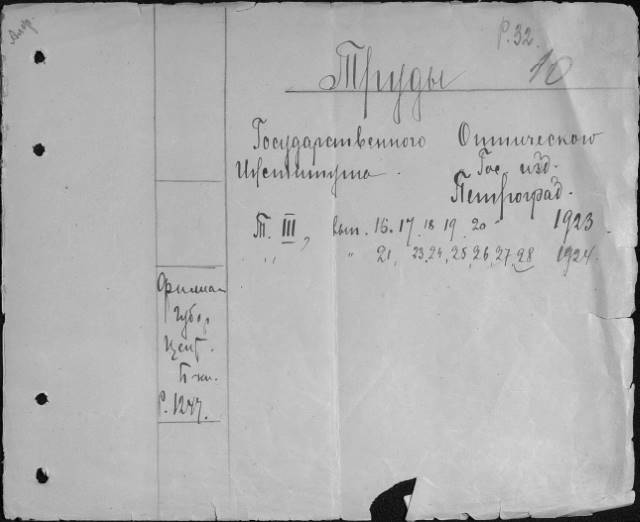 Р. 32.
10
Труды
Государственного Оптического
Института. Гос. изд.
Петроград.
Т. III, вып. 16. 17. 18 19. 20 " 1923.
" " 21, 23, 24, 25, 26, 27, 28 1924.
Филиал
Губ
Цент.
Б-ки.
Р. 1247.